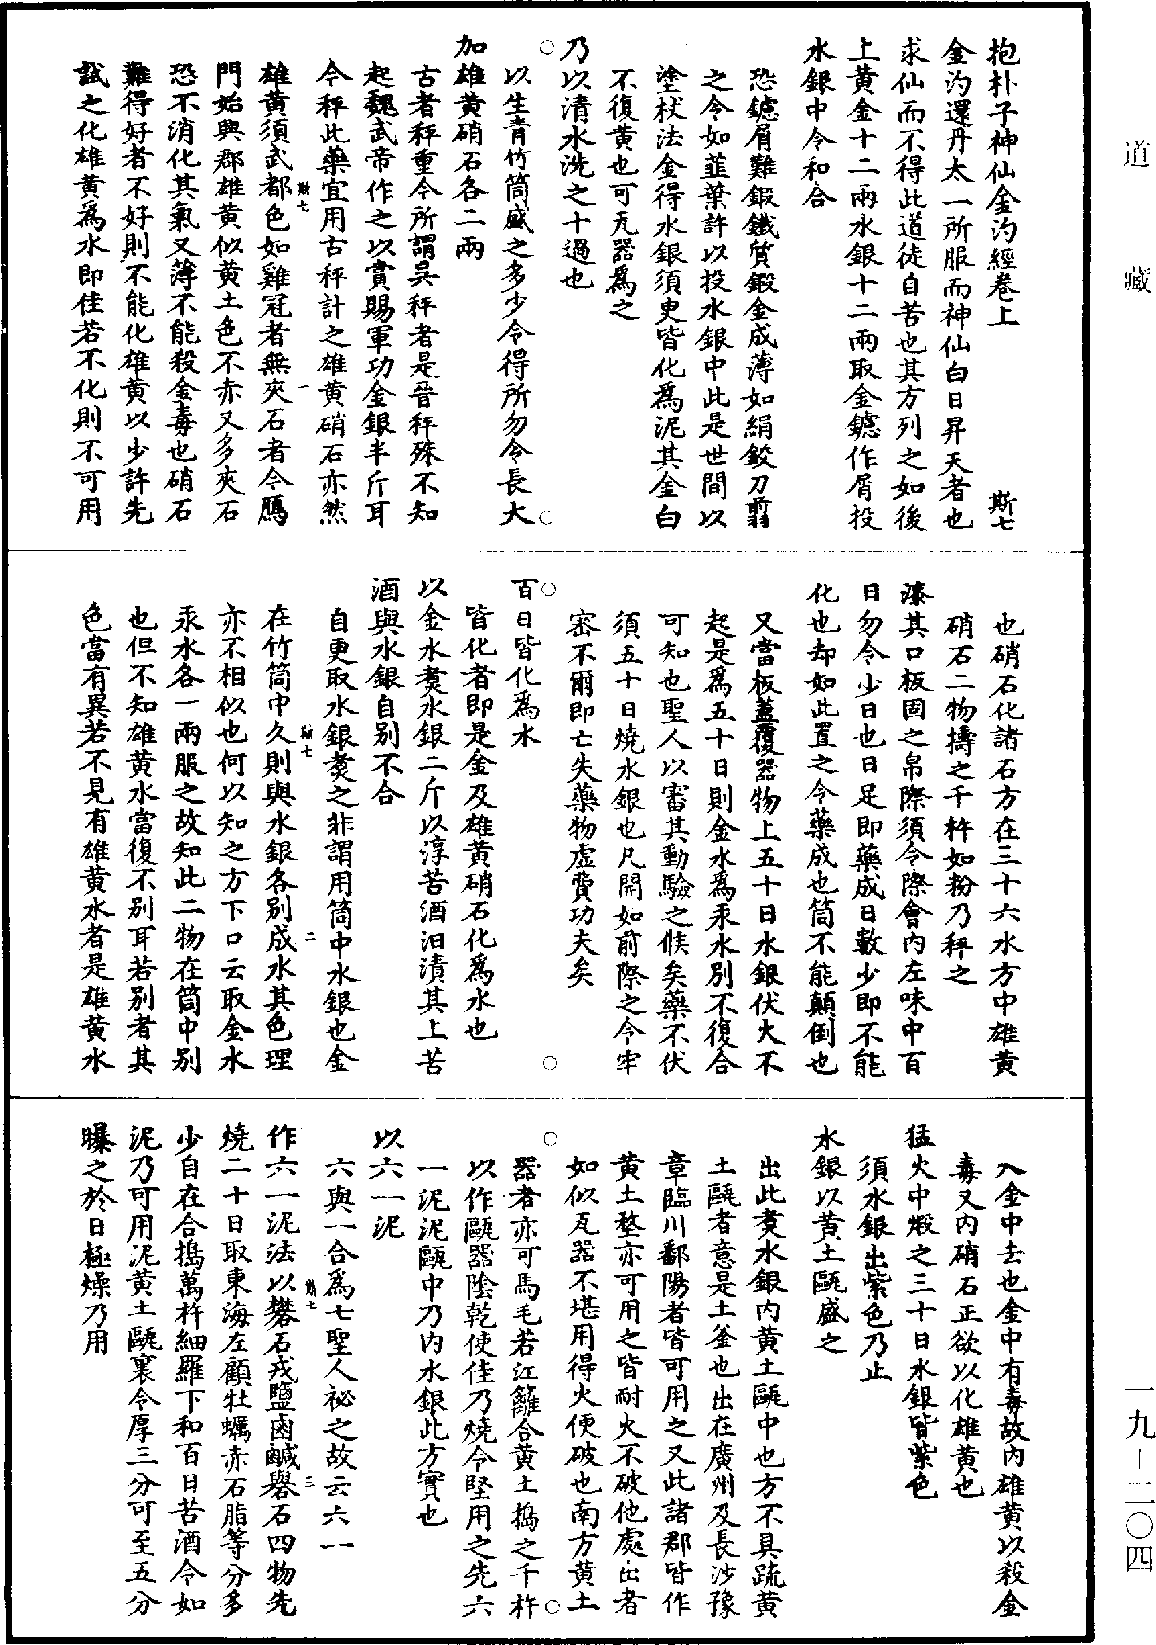 道藏
抱朴子神仙金汋經卷上 斯七
金汋還丹太一所服而神仙白日昇天者也
求仙而不得此道徒自苦也其方列之如後
上黃金十二兩水銀十二兩取金鑢作屑投
水銀中令和合
恐鑢屑難鍛鐵質鍛金成薄如絹鉸刀翦
之令如韮葉許以投水銀中此是世間以
塗杖法金得水銀須臾皆化爲泥其金白
不復黃也可瓦器爲之
乃以清水洗之十過也
以生青竹筒盛之多少令得所勿令長大
加雄黃硝石各二兩
古者秤重今所謂吳秤者是晉秤殊不知
起魏武帝作之以賞賜軍功金銀半斤耳
今秤此藥宜用古秤計之雄黃硝石亦然
斯七 一
雄黃須武都色如雞冠者無夾石者今鴈
門始興郡雄黃似黃土色不赤又多夾石
恐不消化其氣又薄不能殺金毒也硝石
難得好者不好則不能化雄黃以少許先
試之化雄黃爲水即佳若不化則不可用
也硝石化諸石方在三十六水方中雄黃
硝石二物擣之千杵如粉乃秤之
漆其口板固之帛際須令際會內左味中百
日勿令少日也日足即藥成日數少即不能
化也却如此置之令藥成也筒不能顛倒也
又當板蓋覆器物上五十日水銀伏火不
起是爲五十日則金水爲汞水別不復合
可知也聖人以審其動驗之候矣藥不伏
須五十日燒水銀也凡開如前際之令牢
密不爾即亡失藥物虛費功夫矣
百日皆化爲水
皆化者即是金及雄黃硝石化爲水也
以金水煑水銀二斤以淳苦酒沮漬其上苦
酒與水銀自別不合
自更取水銀煑之非謂用筒中水銀也金
斯七 二
在竹筒中久則與水銀各別成水其色理
亦不相似也何以知之方下口云取金水
汞水各一兩服之故知此二物在筒中別
也但不知雄黃水當復不別耳若別者其
色當有異若不見有雄黃水者是雄黃水
入金中去也金中有毒故內雄黃以殺金
毒又內硝石正欲以化雄黃也
猛火中煆之三十日水銀皆紫色
須水銀出紫色乃止
水銀以黃土甌盛之
出此煑水銀內黃土甌中也方不具疏黃
土甌者意是土釜也出在廣州及長沙豫
章臨川鄱陽者皆可用之又此諸郡皆作
黃土墼亦可用之皆耐火不破他處出者
如似瓦器不堪用得火便破也南方黃土
器者亦可馬毛若江籬合黃土搗之千杵
以作甌器陰乾使佳乃燒令堅用之先六
一泥泥甌中乃內水銀此方實也
以六一泥
六與一合爲七聖人祕之故云六一
斯七 三
作六一泥法以礬石戎鹽鹵鹹礜石四物先
燒二十日取東海左顧牡蠣赤石脂等分多
少自在合搗萬杵細羅下和百日苦酒令如
泥乃可用泥黃土甌裏令厚三分可至五分
曝之於日極燥乃用
一九－二〇四